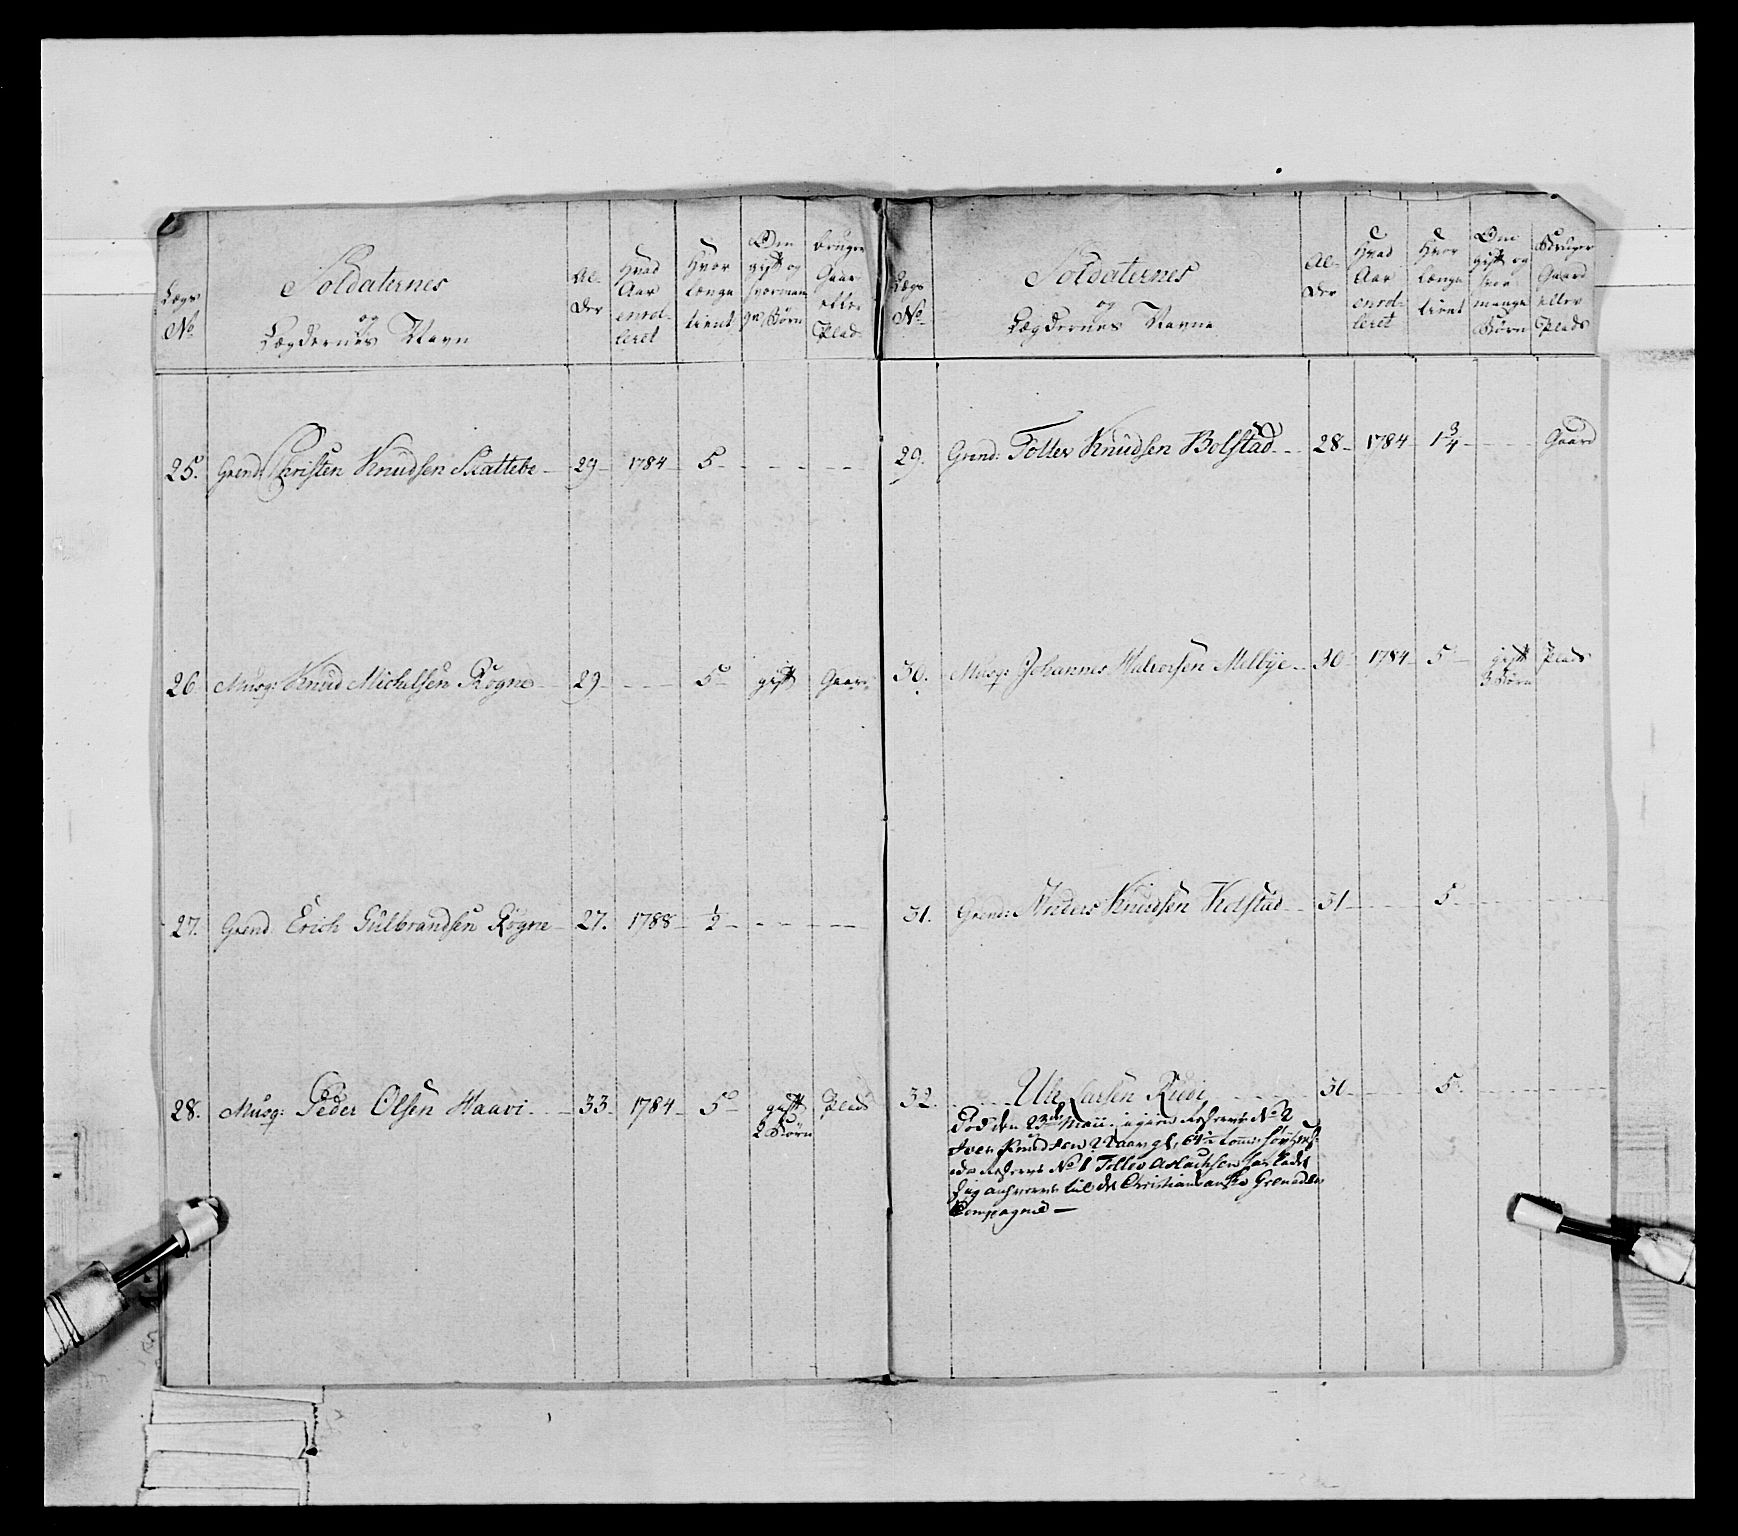 Lægs No
Soldaternes
og
Lægdernes Navn
Al-
der
Hvad
Aar
enrol-
leret
Hvor
længe
tient
Om
gift og
hvorman
ge Børn
Bruger
Gaar
eller
Plads
25. Grend: Christen Knudsen Skattebo 29 1784 5
26 Musq: Knud Michelsen Rogne 29 5 gift Gaar
27. Grend Erich Gulbrandsen Rogne 27. 1788 1/2
28. Musq: Peder Olsen Haavi 33 1784 5 gift Plads
2 Børn
Lægs No
Soldaternes
og
Lægdernes Navne
Al-
der
Hvad
Aar
enrol-
leret
Hvor
længe
tient
Om
gift og
hvor
mange
Børn
Bruger
Gaard
eller
Plads
29. Grend: Tollev Knudsen Bolstad 28 1784 1 3/4 Gaard
30. Musq: Johannes Halvorsen Melbye 30 1784 5 gift Plads
3 Børn
31. Grend: Anders Knudsen Kelstad 31 5
32. Ole Larsen Rudi 31 5
Død den 23de Maii. No 2
Iver Knudsen 22 aar gl, 64
No 1 Tollev Aslachsen har ladet
sig til det Christiansanske Grenadeer
Compagnie